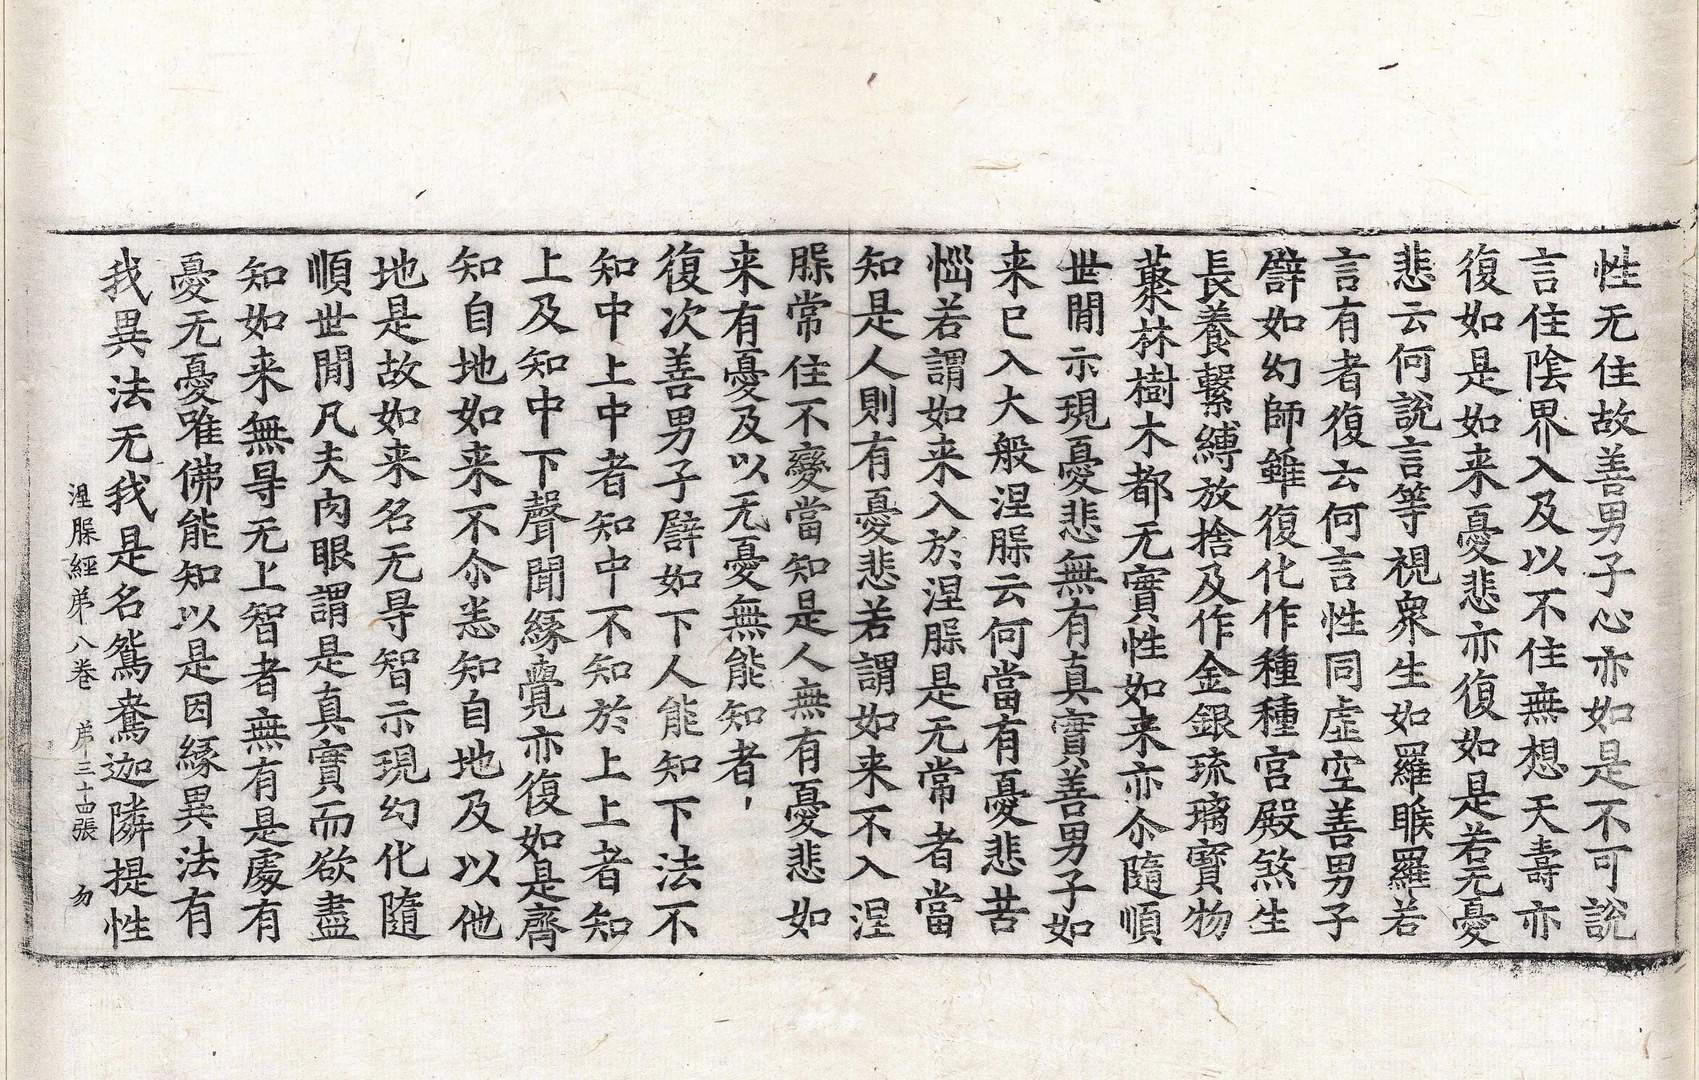 性无住故善男子心亦如是不可說
言住陰界入及以不住無想天壽亦
復如是如来憂悲亦復如是若无憂
悲云何說言等視衆生如羅睺羅若
言有者復云何言性同虛空善男子
譬如幻師雖復化作種種宮殿煞生
長養繫縛放捨及作金銀琉璃寳物
藂林樹木都无實性如来亦尒隨順
世間示現憂悲無有真實善男子如
来已入大般涅槃云何當有憂悲苦
惱若謂如来入於涅槃是无常者當
知是人則有憂悲若謂如来不入涅
槃常住不變當知是人無有憂悲如
来有憂及以无憂無能知者
復次善男子譬如下人能知下法不
知中上中者知中不知於上上者知
上及知中下聲聞緣覺亦復如是齊
知自地如来不尒悉知自地及以他
地是故如来名无㝵智示現幻化隨
順世間凡夫肉眼謂是真實而欲盡
知如来無㝵无上智者無有是處有
憂无憂唯佛能知以是因緣異法有
我異法无我是名鴛鴦迦隣提性
涅槃經弟八卷 弟三十四張 勿